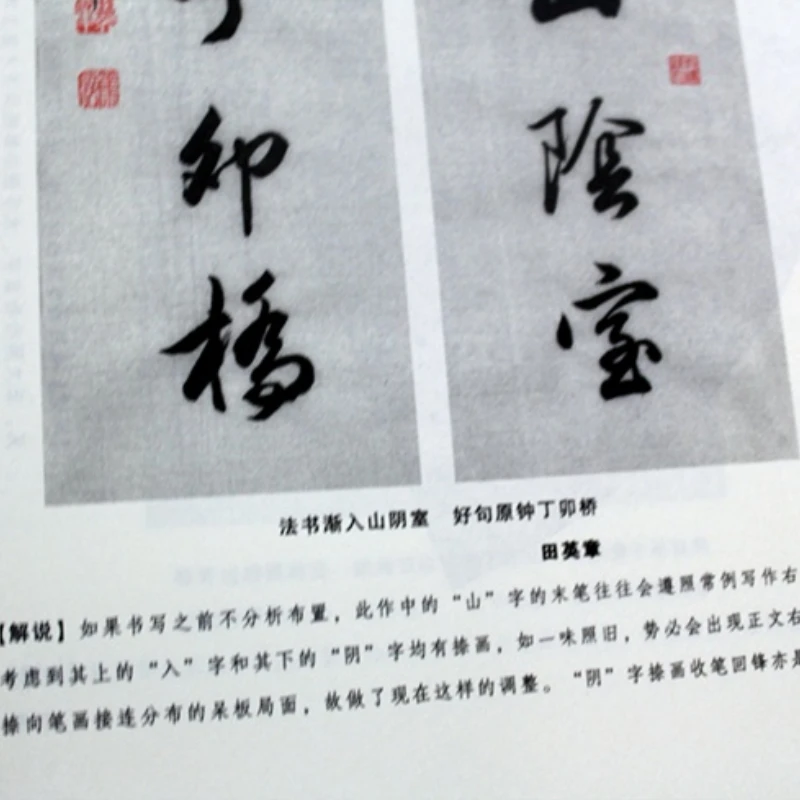 山陰室
丁卯橋
法书渐入山阴室 好句原钟丁卯桥
田英章
【解说】如果书写之前不分析布置，此作中的“山”字的末笔往往会遵照常例写作右
考虑到其上的“入”字和其下的“阴”字均有捺画，如一味照旧，势必会出现正文右
捺向笔画接连分布的呆板局面，故做了现在这样的调整。“阴”字捺画收笔回锋亦是